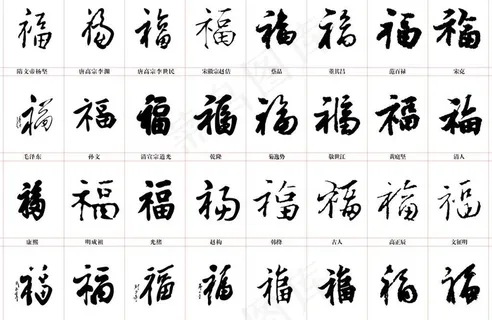 福 福 福 福 福 福 福 福
隋文帝杨坚 唐高宗李渊 唐高宗李世民 宋徽宗赵佶 蔡晶 董其昌 范百禄 宋克
福 福 福 福 福 福 福 福
毛泽东 孙文 清宣宗道光 乾隆 敬世江 黄庭坚 清人
福 福 福 福 福 福 福 福
康熙 明成祖 光绪 赵构 韩绛 古人 高正辰 文征明
福 福 福 福 福 福 福 福